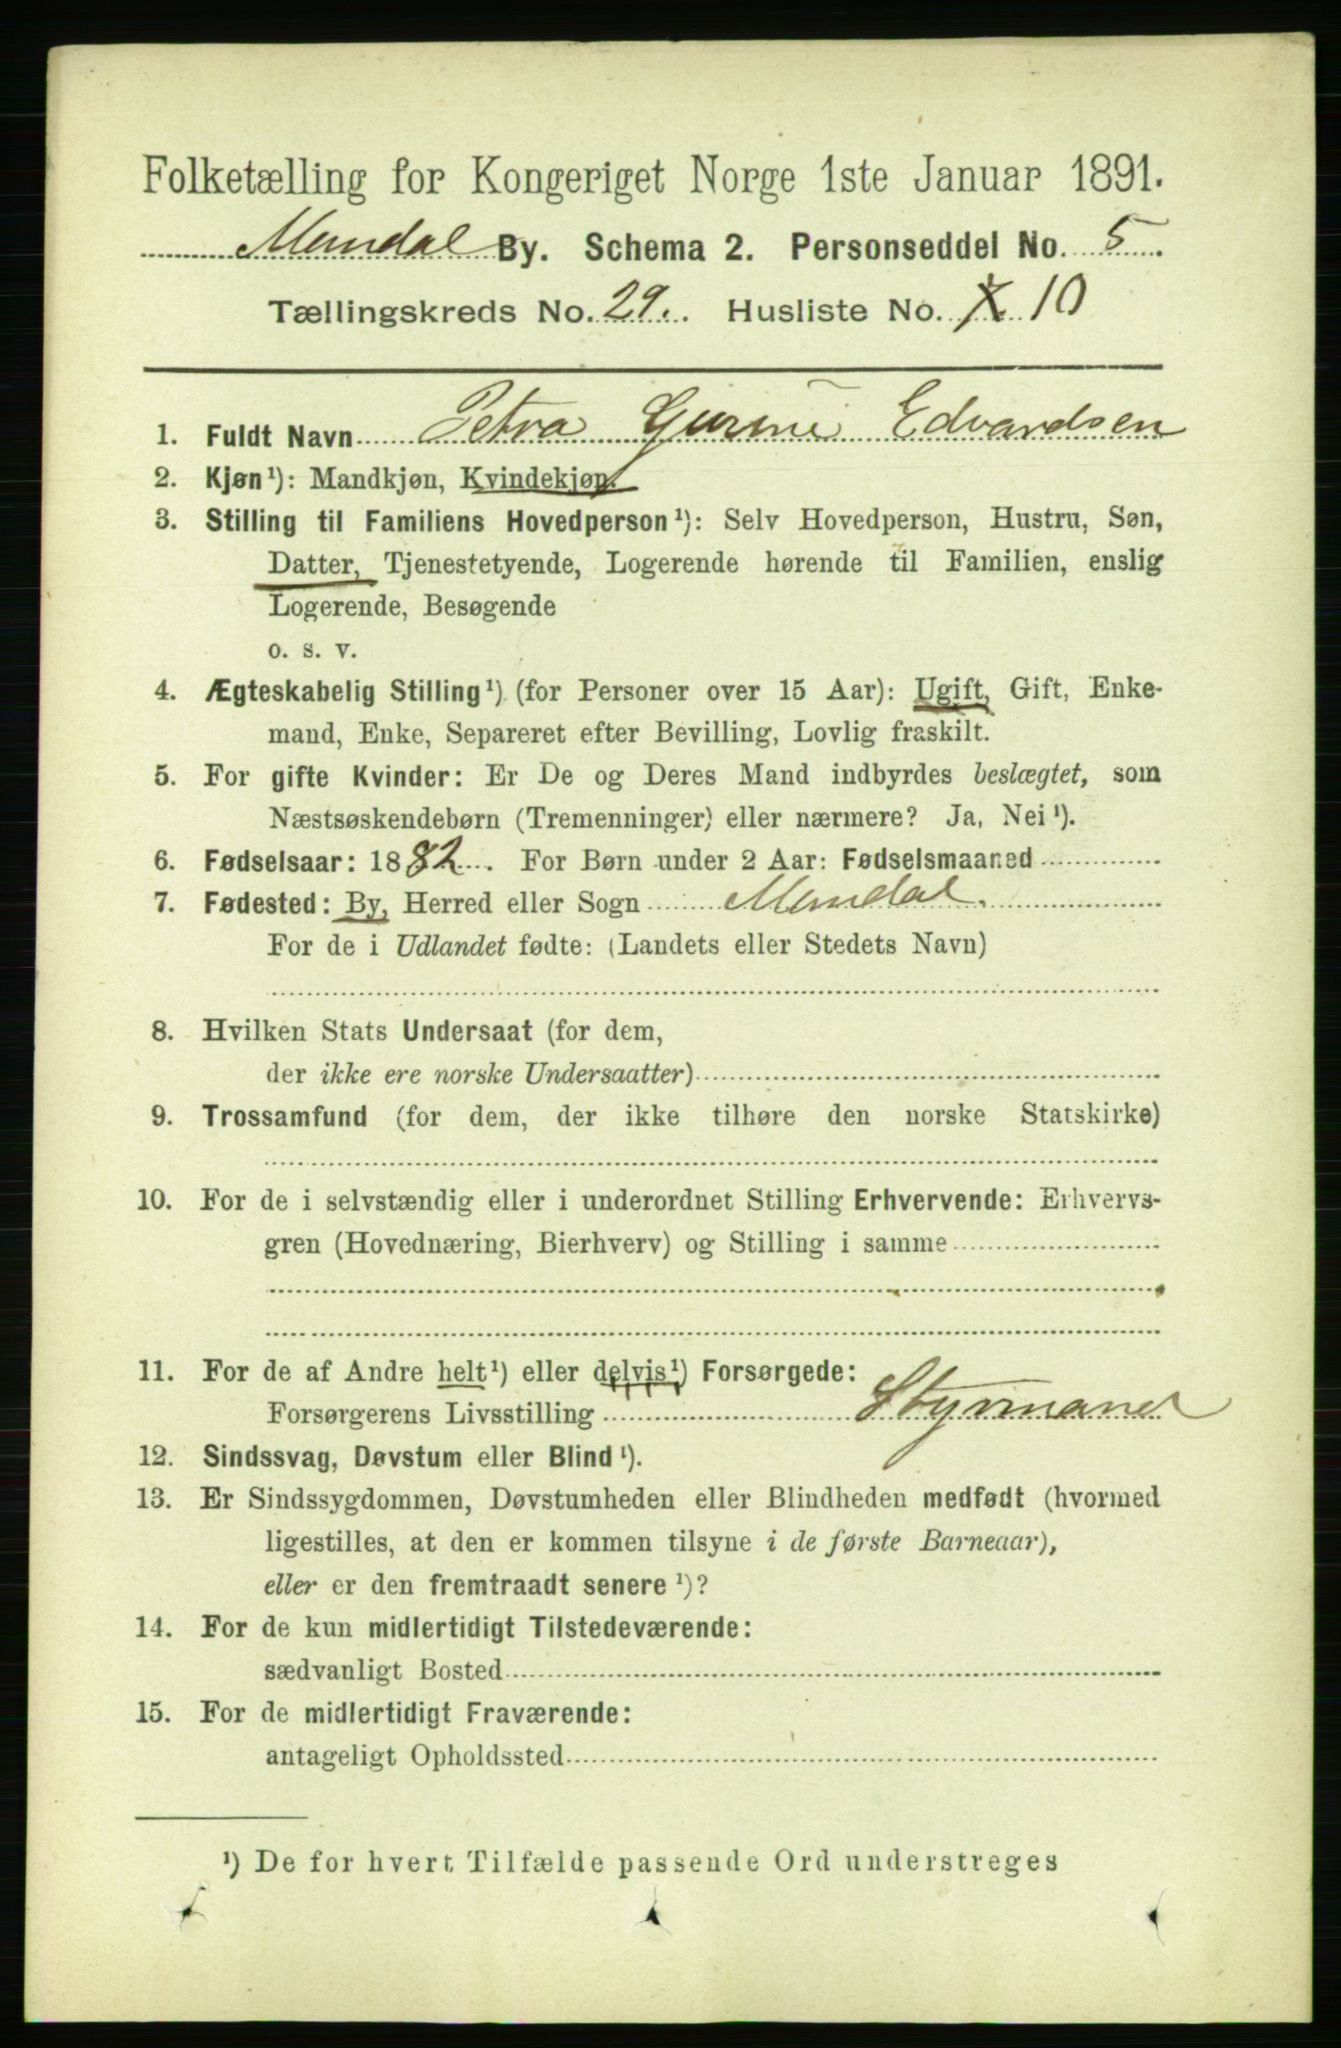 Folketælling for Kongeriget Norge 1ste Januar 1891.
Mandal By. Schema 2. Personseddel No. 5
Tællingskreds No. 29. Husliste No. 10
1. Fuldt Navn Petra Gurine Edvardsen
2. Kjøn¹): Mandkjøn, Kvindekjøn.
3. Stilling til Familiens Hovedperson¹): Selv Hovedperson, Hustru, Søn,
Datter, Tjenestetyende, Logerende hørende til Familien, enslig
Logerende, Besøgende
o. s. v.
4. Ægteskabelig Stilling¹) (for Personer over 15 Aar): Ugift, Gift, Enke-
mand, Enke, Separeret efter Bevilling, Lovlig fraskilt.
5. For gifte Kvinder: Er De og Deres Mand indbyrdes beslægtet, som
Næstsøskendebørn (Tremenninger) eller nærmere? Ja, Nei¹).
6. Fødselsaar: 1882. For Børn under 2 Aar: Fødselsmaaned
7. Fødested: By, Herred eller Sogn Mandal.
For de i Udlandet fødte: (Landets eller Stedets Navn)
8. Hvilken Stats Undersaat (for dem,
der ikke ere norske Undersaatter)
9. Trossamfund (for dem, der ikke tilhøre den norske Statskirke)
10. For de i selvstændig eller i underordnet Stilling Erhvervende: Erhvervs-
gren (Hovednæring, Bierhverv) og Stilling i samme
11. For de af Andre helt¹) eller delvis¹) Forsørgede:
Forsørgerens Livsstilling Styrmand
12. Sindssvag, Døvstum eller Blind¹).
13. Er Sindssygdommen, Døvstumheden eller Blindheden medfødt (hvormed
ligestilles, at den er kommen tilsyne i de første Barneaar),
eller er den fremtraadt senere¹)?
14. For de kun midlertidigt Tilstedeværende:
sædvanligt Bosted
15. For de midlertidigt Fraværende:
antageligt Opholdssted
¹) De for hvert Tilfælde passende Ord understreges